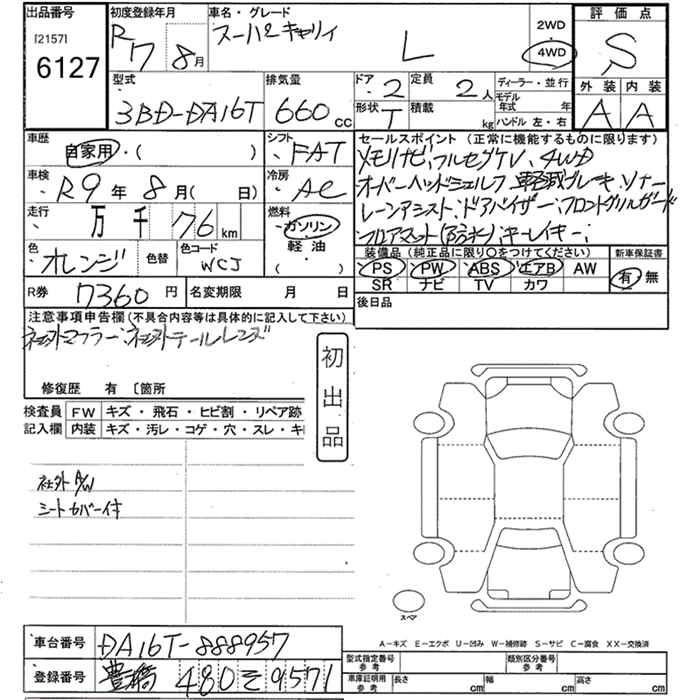 出品番号 初度登録年月 車名・グレード 評価点
[2157] 6127 R7 8月 スーパーキャリイ L 2WD 4WD S
外装 内装
A A
型式 排気量 ドア 定員 ディーラー・並行
3BD-DA16T 660cc 2 2人 モデル年式 年
形状 積載 ハンドル 左・右
T kg
車歴 シフト セールスポイント(正常に機能するものに限ります)
自家用・( ) FAT メモリナビ;フルセグTV、4WD
車検 冷房 オーバーヘッドシェルフ 軽減ブレーキ;ソナー
R9年8月( 日) AC レーンアシスト;ドアバイザー;フロントグリルガード
走行 燃料 フロアマット(防水);キーレスキー;
万 千 76 km ガソリン
軽油
( )
色 色替 色コード 装備品(純正品に限り○をつけてください) 新車保証書
オレンジ WCJ PS PW ABS エアB AW 有 無
SR ナビ TV カワ
R券 7360円 名変期限 月 日 後日品
注意事項申告欄(不具合内容等は具体的に記入して下さい)
社外マフラー;社外テールレンズ
初出品
修復歴 有 〔箇所
検査員 FW キズ・飛石・ヒビ割・リペア跡
記入欄 内装 キズ・汚レ・コゲ・穴・スレ・キ
社外A/W
シートカバー付
スペア
A-キズ E-エクボ U-凹み W-補修跡 S-サビ C-腐食 XX-交換済
車台番号 DA16T-888957
登録番号 豊橋 480 そ 9571
型式指定番号 参考 類別区分番号 参考
車庫証明用 参考 長さ cm 幅 cm 高さ cm